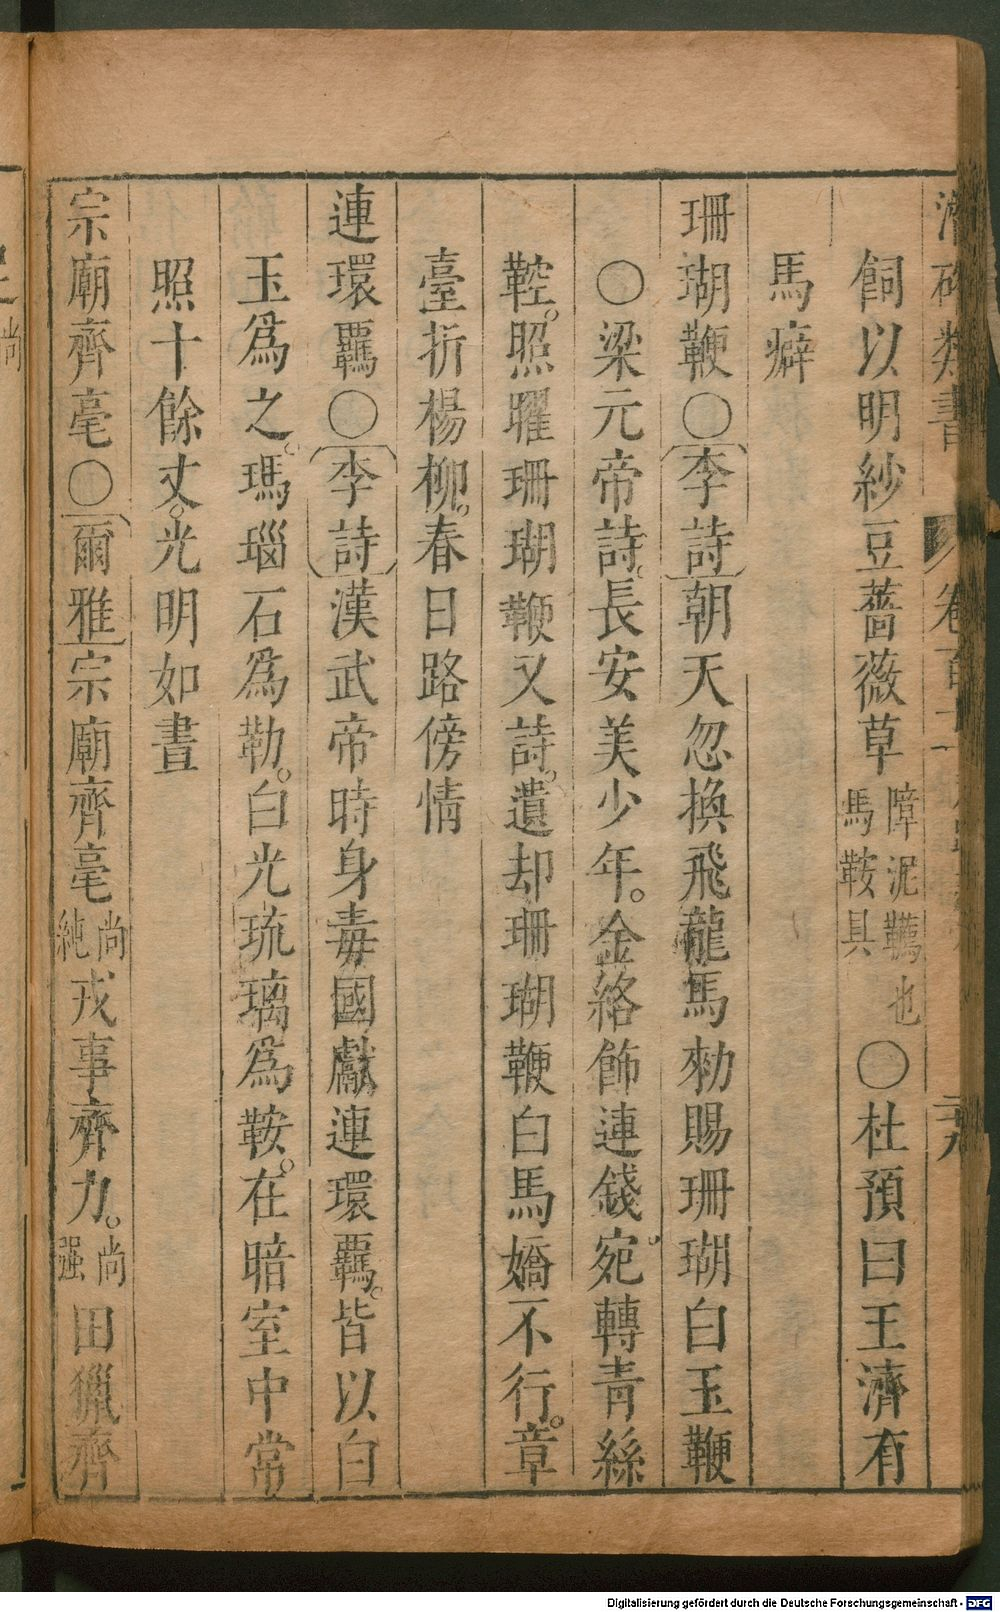 飼以明紗豆薔薇草障泥韉也馬鞍具〇杜預曰王濟有
馬癖
珊瑚鞭〇李詩朝天忽換飛龍馬勑賜珊瑚白玉鞭
〇梁元帝詩長安美少年。金絡飾連錢宛轉青絲
鞚。照曜珊瑚鞭又詩。遺却珊瑚鞭白馬嬌不行。章
臺折楊柳。春日路傍情
連環羈〇李詩漢武帝時身毒國獻連環羈。皆以白
玉爲之。瑪瑙石爲勒。白光琉璃爲鞍。在暗室中常
照十餘丈。光明如晝
宗廟齊毫〇爾雅宗廟齊毫尚純戎事齊力。尚强田獵齊
Digitalisierung gefördert durch die Deutsche Forschungsgemeinschaft - DFG